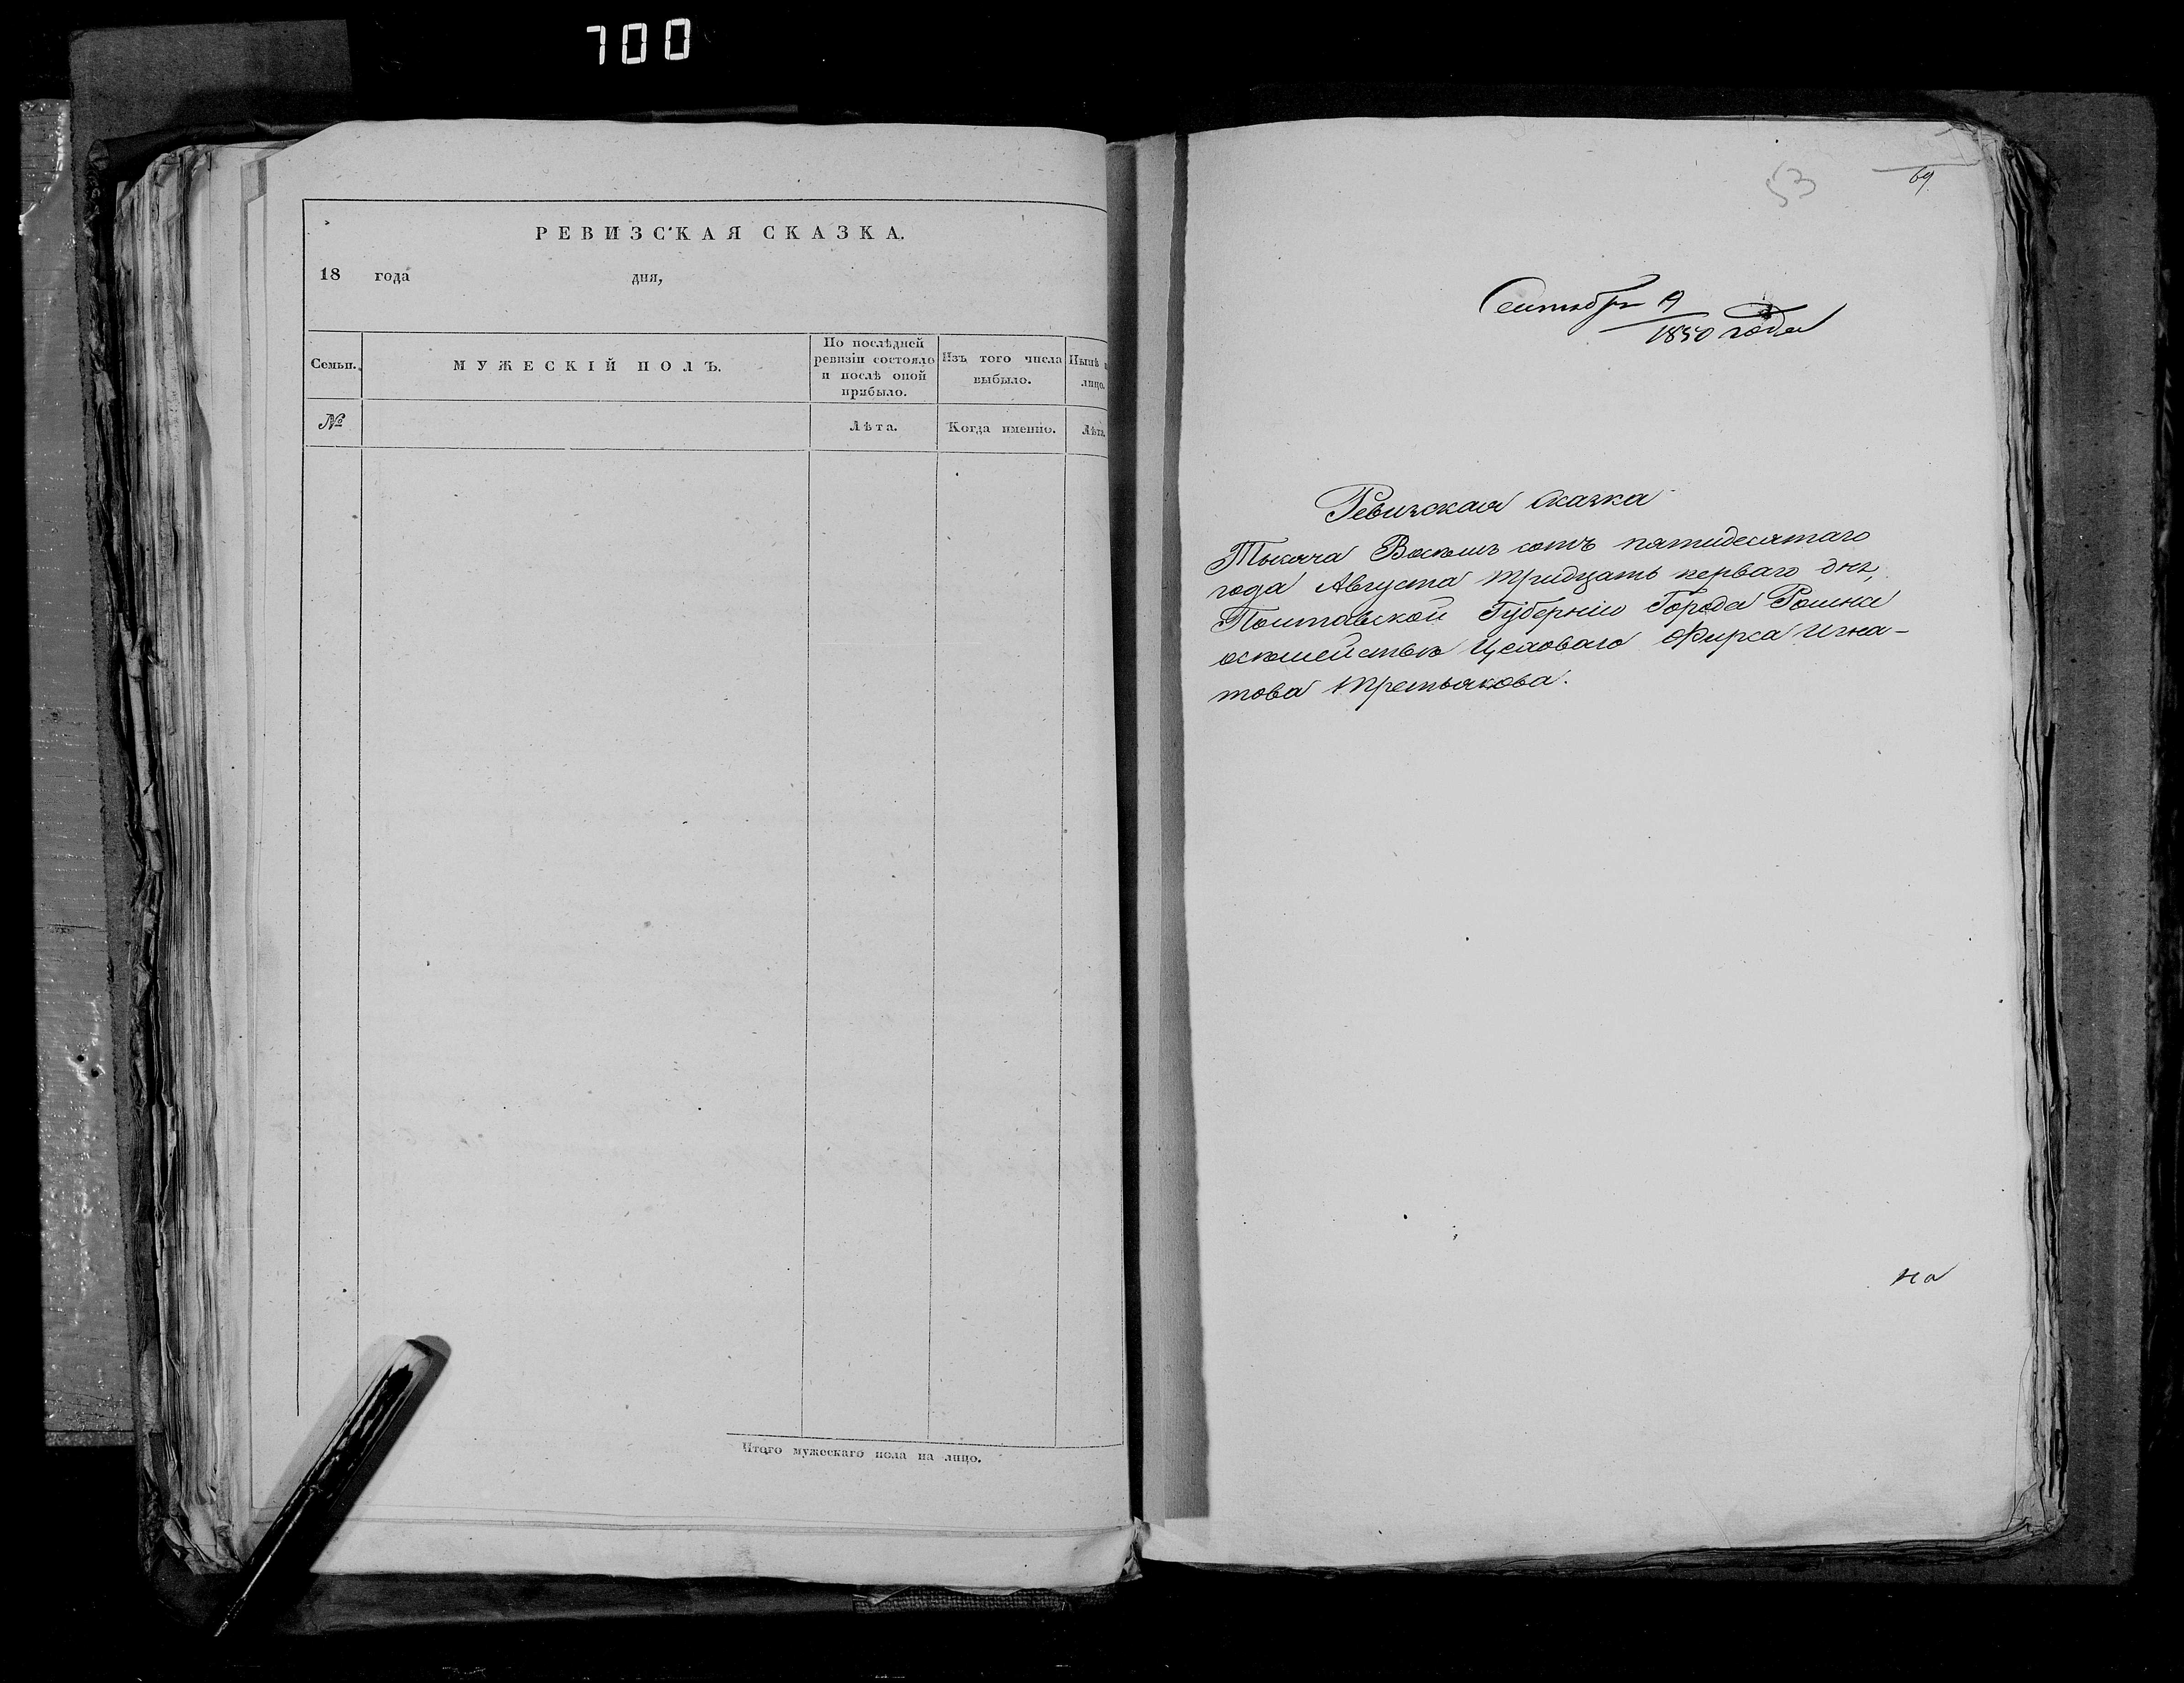 700
РЕВИЗСКАЯ СКАЗКА.
18 года дня,
Семьи.
МУЖЕСКІЙ ПОЛЪ.
По послѣдней
ревизіи состояло
и послѣ оной
прибыло.
Изъ того числа
выбыло.
Нынѣ
лицо.
№
Лѣта.
Когда именно.
Лѣта.
Итого мужескаго пола на лицо.
53
69
Сентября 9
1850 года
Ревизская сказка
Тысяча Восемь сотъ пятидесятаго
года Августа тридцать перваго дня,
Полтавской Губерніи Города Ромна
о семействѣ Цеховаго Фирса Игна-
това Третьякова.
на